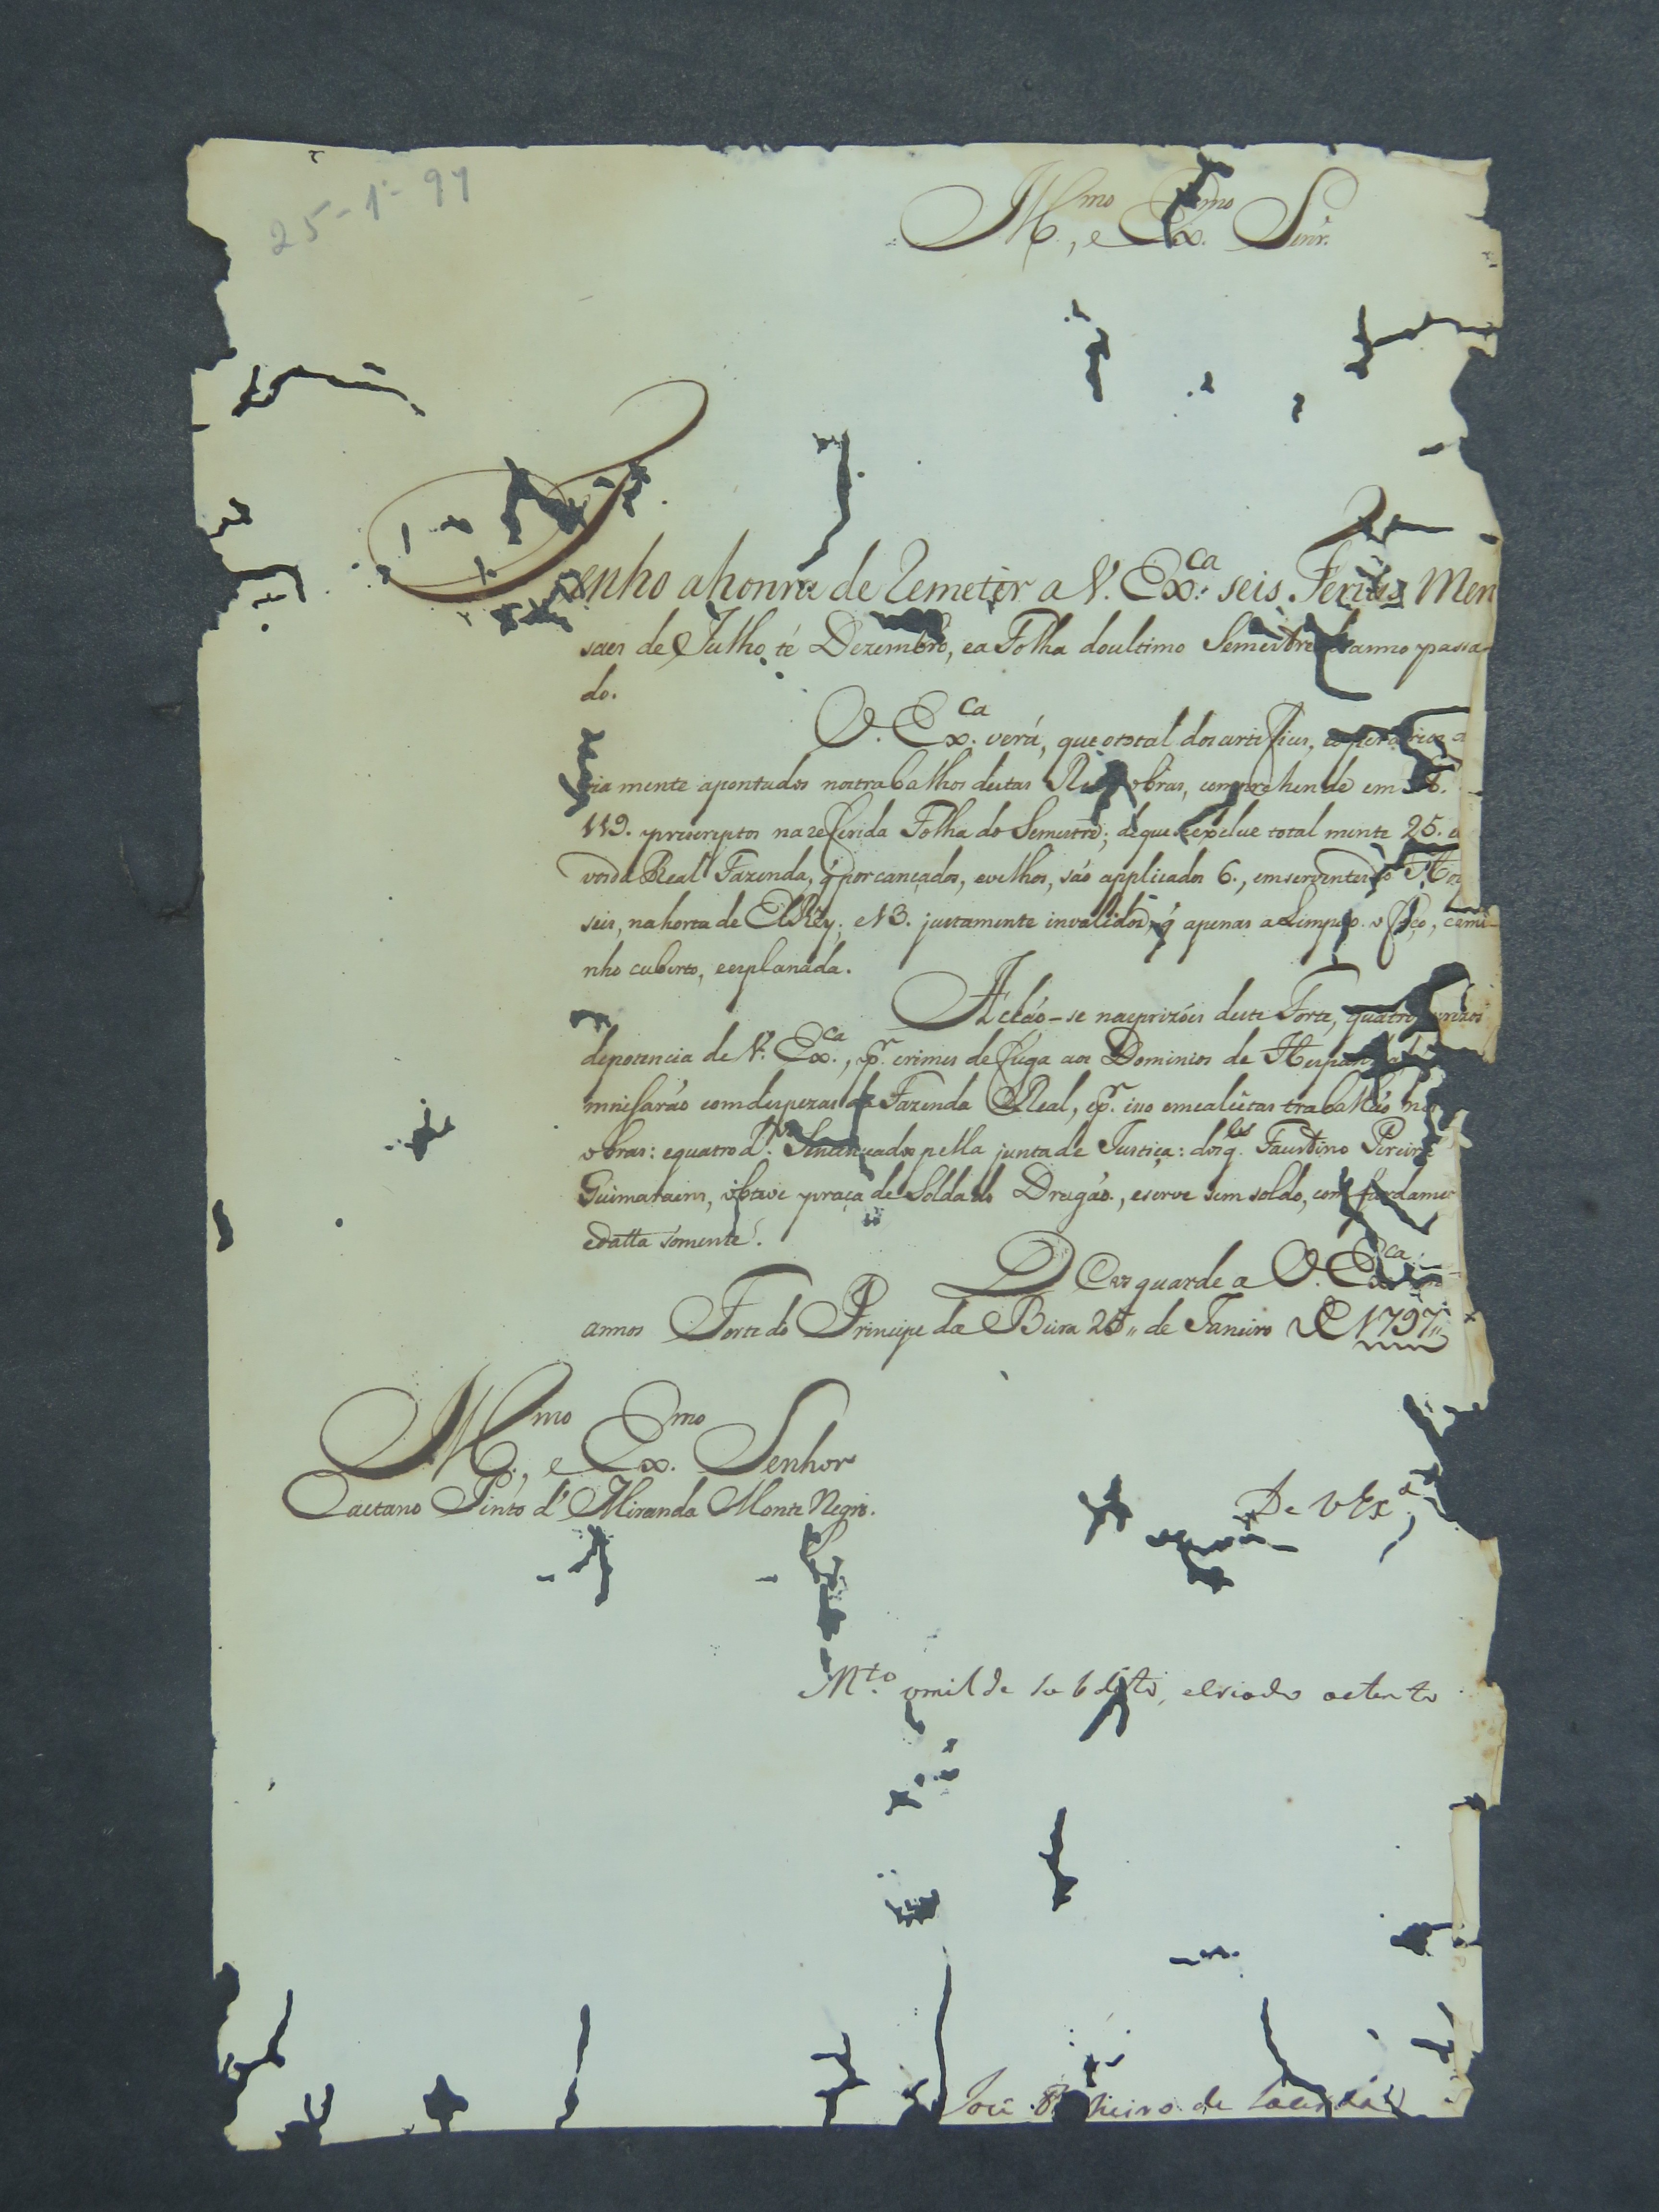 25-1º-97
Ill.mo, e Ex.mo Senr.
Tenho a honra de Remeter a V. Ex.ca seis Ferias Men
saes de Julho té Dezembro, ea Folha doultimo Semestre do anno passa-
do.
V. Ex.ca verá, que ototal dos artifices, e operarios
riamente apontados nos trabalhos destas obras, comprehende em
119. prescriptos na referida Folha do Semestre; de que se exclue total mente 25.
vosda Real Fazenda, q̃ por cançados, evelhos, são applicados 6., em serventes do Hos
seis, na horta de ElRey; e 13. justamente invalidos, q̃ apenas a Limpão o foço, cami-
nho cuberto, e esplanada.
Achão-se nas prizões deste Forte, quatro
depotencia de V. Ex.ca, p.r crimes de fuga aos Dominios de Hespanha,
com despezas da Fazenda Real, e p.r isso emcalcetas trabalhão n
obras: equatro d.os Sentenceados pella junta de Justiça: dos q.es Faustino Pereira
Guimaraens, obteve praça de Soldado Dragão, eserve sem soldo, com fardame
somente.
Deos guarde a V. Ex.ca
annos Forte do Principe da Beira 25,, de Janeiro de 1797,,
Ill.mo, e Ex.mo Senhor
Caetano Pinto d' Miranda Monte Negro.
De V Ex.a
M.to omilde Subdito, eCriado atento
José Pinheiro de Lacerda